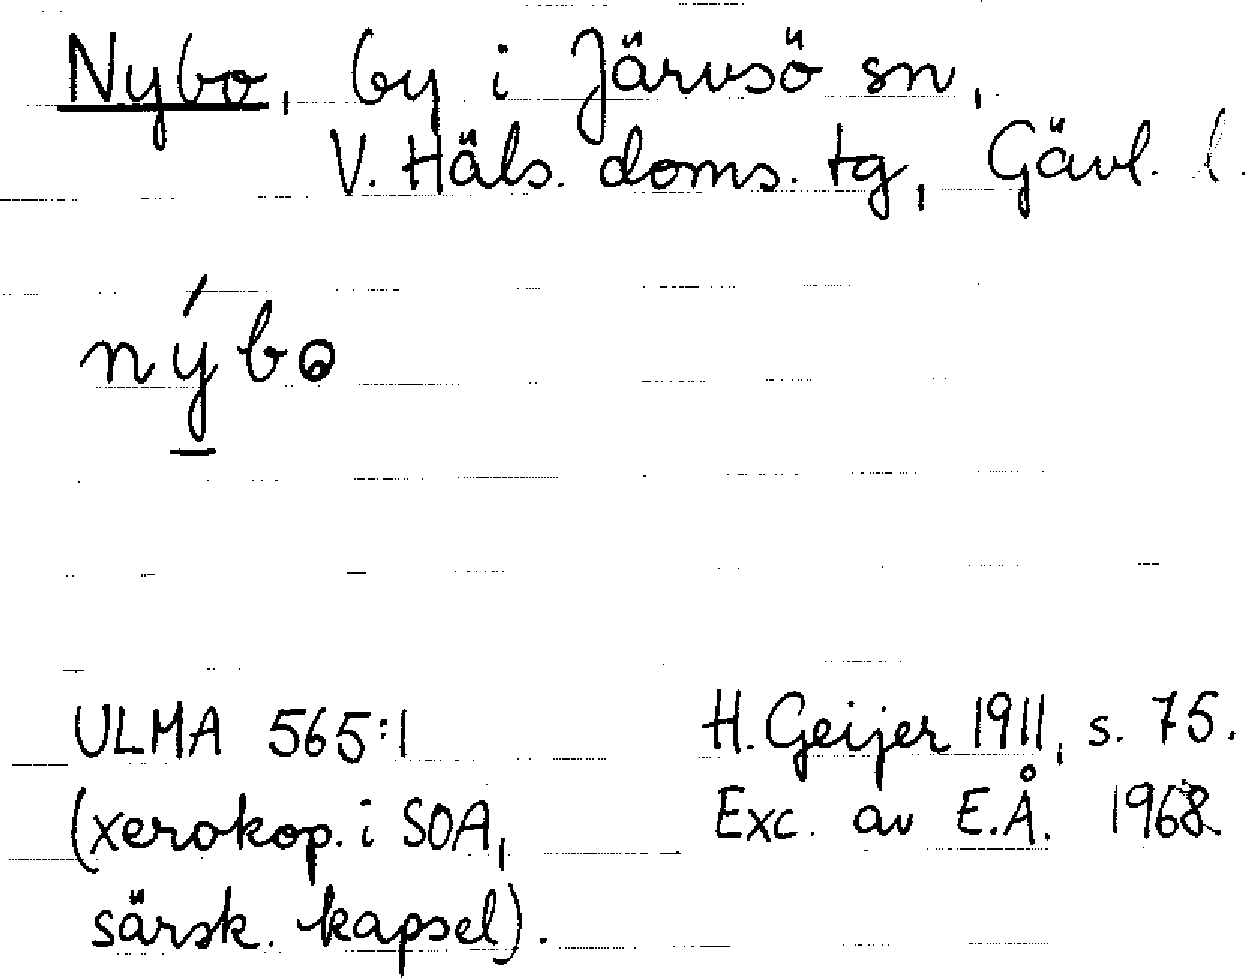 Nybo, by i Järvsö sn,
V. Häls. doms. tg, Gävl. l.
nýbo
ULMA 565:1
(xerokop. i SOA,
särsk. kapsel).
H. Geijer 1911, s. 75.
Exc. av E.Å. 1968